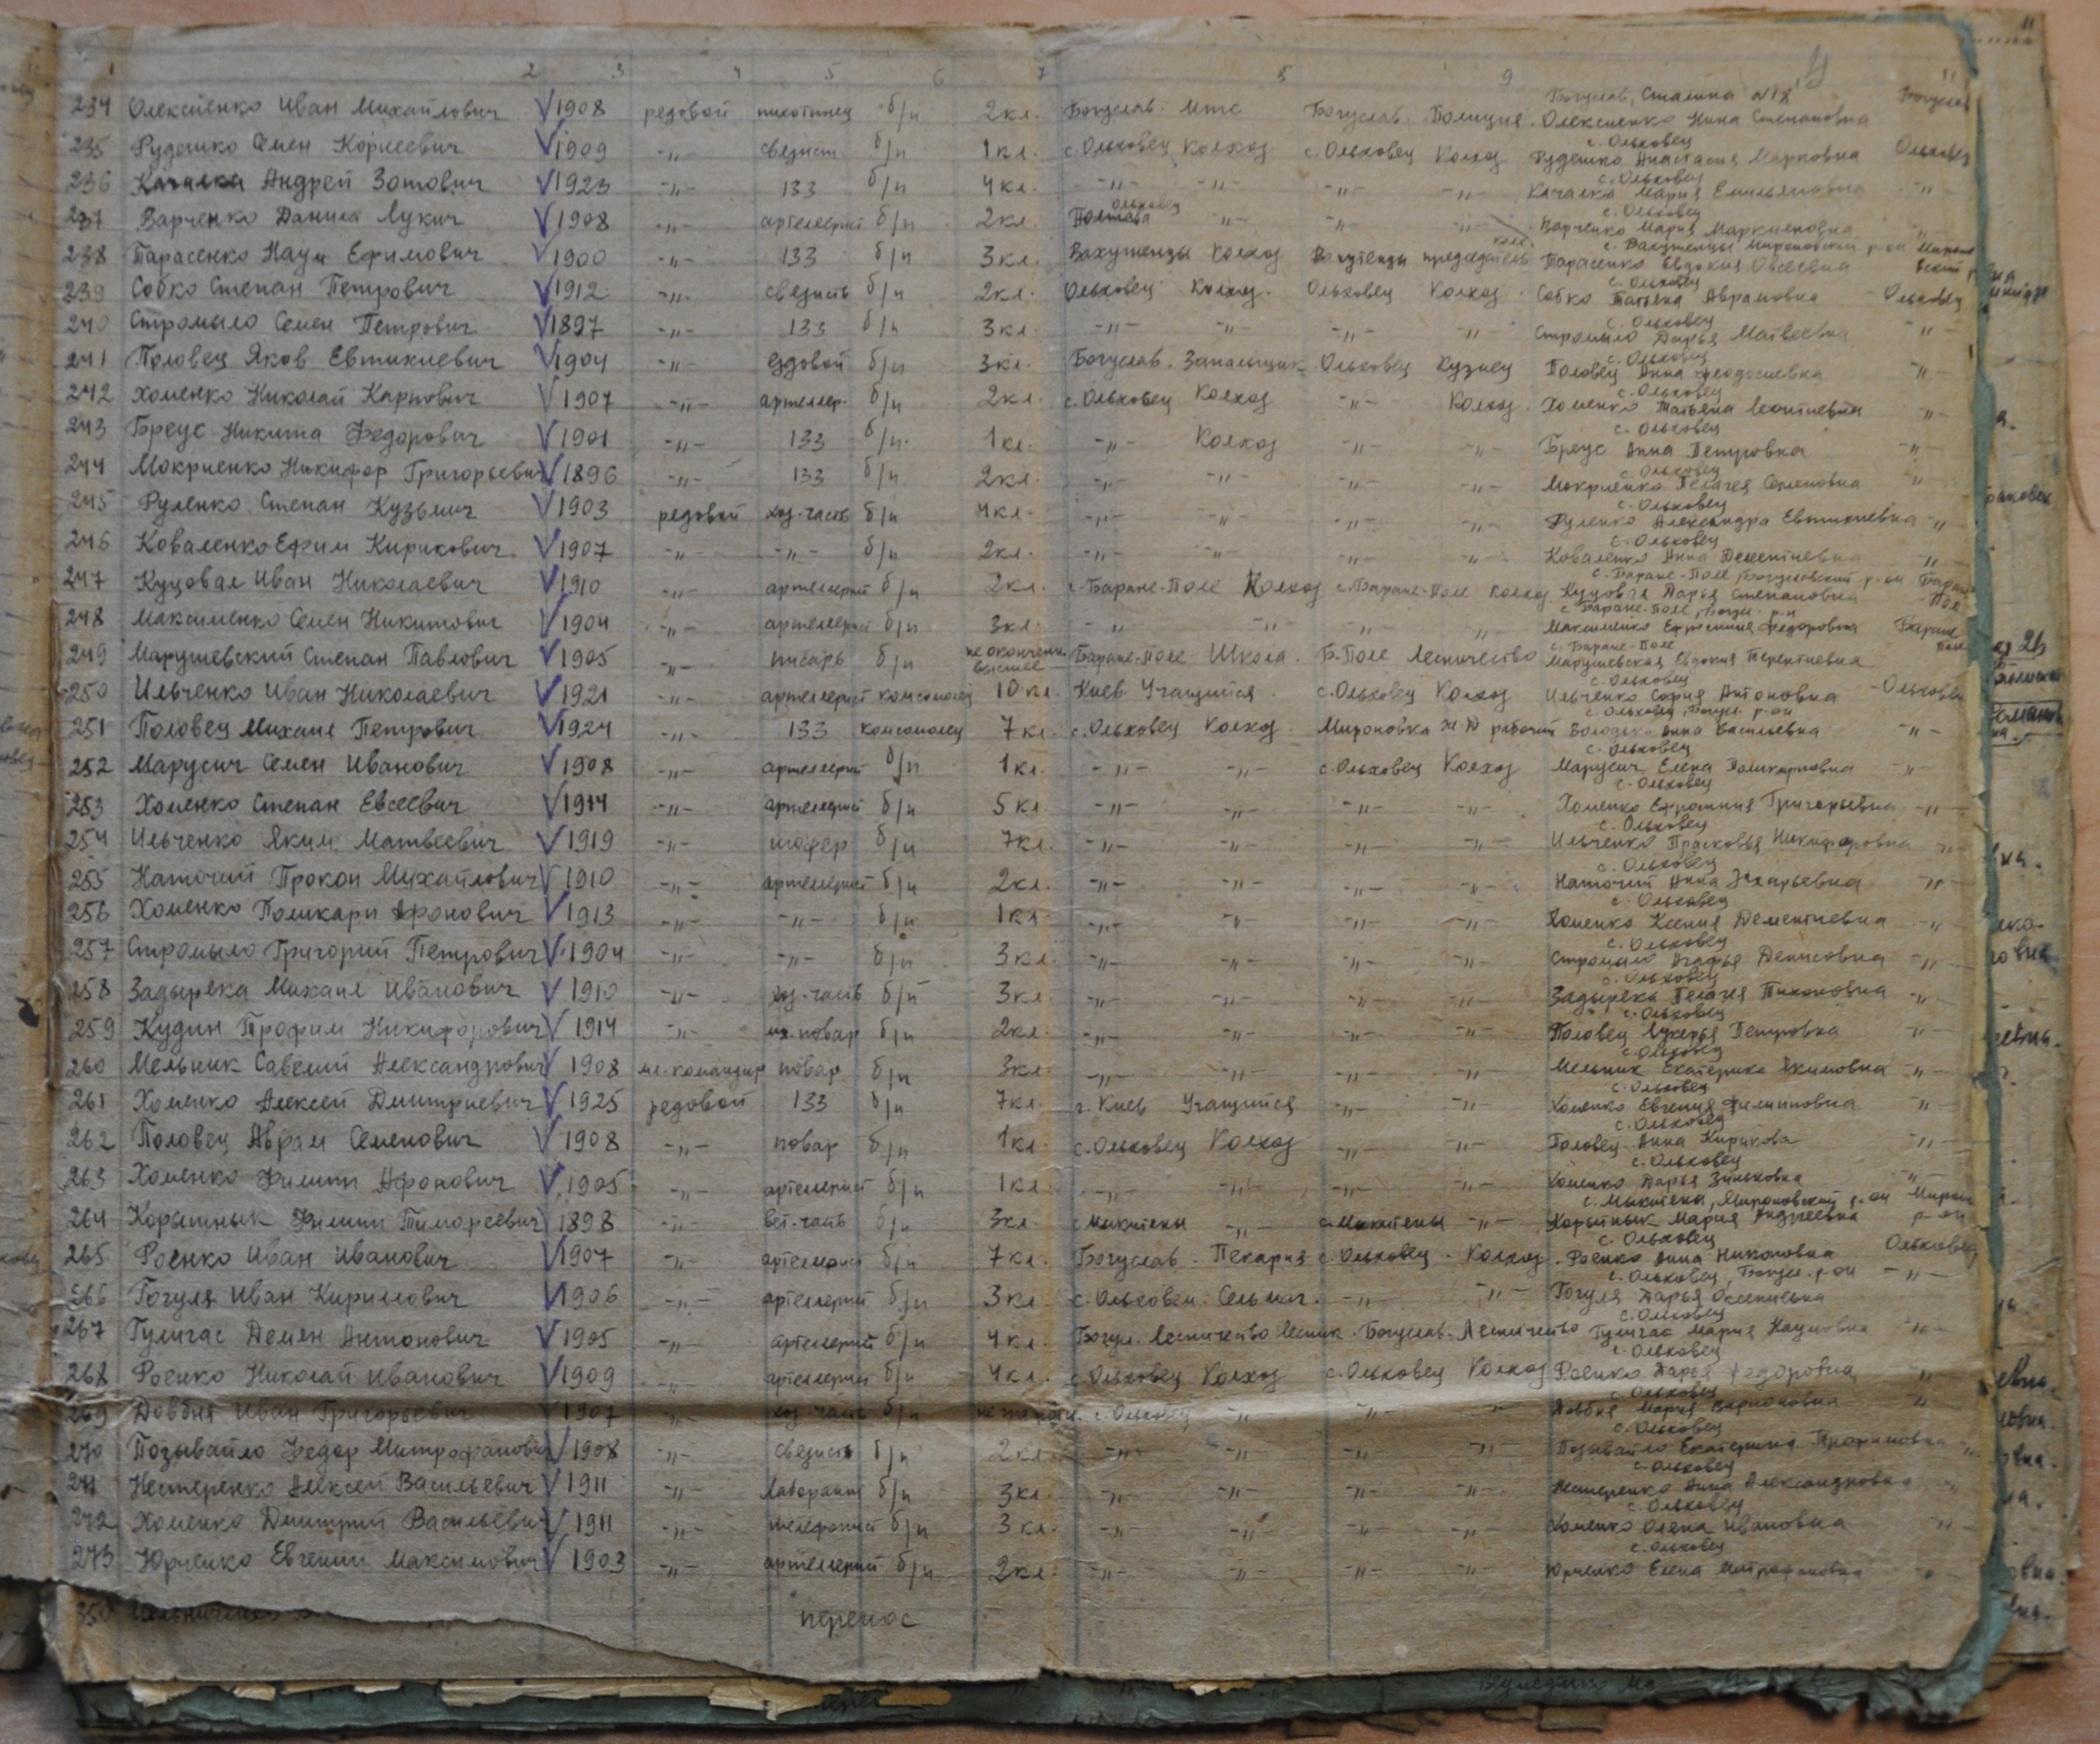 1 2 3 4 5 6 7 8 9 11
Богуслав, Сталина №18
234 Олексиенко Иван Михайлович V 1908 редовой пихотинец б/п 2кл. Богуслав. Мтс Богуслав. Полиция. Олексиенко Нина Степановна Богуслав
с. Ольховец
235 Рудешко Семен Корнеевич V 1909 -"- связист б/п 1кл. с. Ольховец Колхоз с. Ольховец Колхоз Рудешко Анастасия Марковна Ольховец
с. Ольховец
236 Качалка Андрей Зотович V 1923 -"- 133 б/п 4кл. -"- -"- -"- -"- Качалка Мария Емильяновна -"-
Ольховец с. Ольховец
237 Варченко Данила Лукич V 1908 -"- артелерист б/п 2кл. -"- -"- -"- Варченко Мария Маркияновна -"-
с. Вахутенцы Мироновский р-он
238 Тарасенко Наум Ефимович V 1900 -"- 133 б/п 3кл. Вахутенцы Колхоз Вахутенцы председатель Тарасенко Евдокия Овсеевна
с. Ольховец
239 Собко Степан Петрович V 1912 -"- связисть б/п 2кл. Ольховец Колхоз. Ольховец Колхоз. Собко Татьяна Аврамовна Ольховец
с. Ольховец
240 Стромыло Семен Петрович V 1897 -"- 133 б/п 3кл. -"- -"- -"- -"- Стромыло Дарья Матвеевна -"-
с. Ольховец
241 Половец Яков Евтихиевич V 1904 -"- ездовой б/п 3кл. Богуслав. Запальщик Ольховец Кузнец Половец Анна Феодосиевна -"-
с. Ольховец
242 Хоменко Николай Карпович V 1907 -"- артеллер. б/п 2кл. с. Ольховец Колхоз -"- Колхоз. Хоменко Татьяна Леонтиевна -"-
с. Ольховец
243 Бреус Никита Федорович V 1901 -"- 133 б/п. 1кл. -"- Колхоз -"- -"- Бреус Анна Петровна -"-
с. Ольховец
244 Мокриенко Никифор Григорьевич V 1896 -"- 133 б/п 2кл. -"- -"- -"- -"- Мокриенко Пелагея Семеновна -"-
с. Ольховец
245 Руленко Степан Кузьмич V 1903 редовой хоз-часть б/п 4кл. -"- -"- -"- -"- Руленко Александра Евтихиевна -"-
с. Ольховец
246 Коваленко Ефим Кирикович V 1907 -"- -"- б/п 2кл. -"- -"- -"- -"- Коваленко Анна Дементиевна -"-
с. Баране-Поле, Богуславский р-он
247 Куцовал Иван Николаевич V 1910 -"- артелерист б/п 2кл. с. Баране-Поле Колхоз с. Баране-Поле колхоз Куцовал Дарья Степановна Баране-Пол
с. Баране-Поле, Богус. р-н
248 Максименко Семен Никитович V 1904 -"- артелерист б/п 3кл. -"- -"- -"- -"- Максименко Ефросиния Федоровна Баране Поле
с. Баране-Поле
249 Марушевский Степан Павлович V 1905 -"- писарь б/п не окончени высшее Баране-Поле Школа. Б-Поле Лесничество Марушевская Евдокия Терентиевна
с. Ольховец
250 Ильченко Иван Николаевич V 1921 -"- артелерист комсомолец 10кл. Киев. Учащийся. с. Ольховец Колхоз Ильченко София Антоновна -Ольховец
с. Ольховец, Богус. р-он
251 Половец Михаил Петрович V 1924 -"- 133 комсомолец 7кл. с. Ольховец Колхоз. Мироновка Ж Д рабочий Анна Васильевна -"-
с. Ольховец
252 Марусич Семен Иванович V 1908 -"- артелерист б/п 1кл. -"- -"- с. Ольховец Колхоз Марусич Елена Поликарповна -"-
с. Ольховец
253 Хоменко Степан Евсеевич V 1914 -"- артелерист б/п 5кл. -"- -"- -"- -"- Хоменко Ефросиния Григорьевна -"-
с. Ольховец
254 Ильченко Яким Матвеевич V 1919 -"- шофер б/п 7кл. -"- -"- -"- -"- Ильченко Прасковья Никифоровна -"-
с. Ольховец
255 Наточий Прокоп Михайлович V 1910 -"- артелерист б/п 2кл. -"- -"- -"- -"- Наточий Анна Захарьевна -"-
с. Ольховец
256 Хоменко Поликарп Афонович V 1913 -"- -"- б/п 1кл -"- -"- -"- -"- Хоменко Ксения Дементиевна -"-
с. Ольховец
257 Стромыло Григорий Петрович V 1904 -"- -"- б/п 3кл. -"- -"- -"- -"- Стромыло Агафья Денисовна -"-
с. Ольховец
258 Задырека Михаил Иванович V 1910 -"- хоз-часть б/п 3кл. -"- -"- -"- -"- Задырека Пелагея Тихоновна -"-
с. Ольховец
259 Кудин Трофим Никифорович V 1914 -"- повар б/п 2кл. -"- -"- -"- -"- Половец Лукерья Петровна -"-
с. Ольховец
260 Мельник Савелий Александрович V 1908 мл. командир повар б/п 3кл. -"- -"- -"- -"- Мельник Екатерина Якимовна -"-
с. Ольховец
261 Хоменко Алексей Дмитриевич V 1925 редовой 133 б/п 7кл. г. Киев Учащийся -"- -"- Хоменко Евгения Филипповна -"-
с. Ольховец
262 Половец Аврам Семенович V 1908 -"- повар б/п 1кл. с. Ольховец Колхоз -"- -"- Половец Анна Кирикова -"-
с. Ольховец
263 Хоменко Филипп Афонович V 1905 -"- артелерист б/п 1кл. -"- -"- -"- -"- Хоменко Дарья Зиньковна -"-
с. Мыкитены, Мироновский р-он
264 Корытнык Филипп Тимофеевич 1898 -"- вет-часть б/п 3кл. с. Микитены -"- с. Микитены -"- Корытнык Мария Андреевна р-он
с. Ольховец
265 Роенко Иван Иванович V 1907 -"- артелерист б/п 7кл. Богуслав. Пекария с. Ольховец. Колхоз. Роенко Анна Никоновна Ольховец
с. Ольховец, Богус. р-он
266 Гогуля Иван Кирилович V 1906 -"- артелерист б/п 3кл. с. Ольховец. Сельмаг. -"- -"- Гогуля Дарья Оксентьевна -"-
с. Ольховец
267 Гулигас Демян Антонович V 1905 -"- артелерист б/п 4кл. Богус. Лесничество Лесник. Богуслав. Лесничество Гулигас Мария Наумовна -"-
с. Ольховец
268 Роенко Николай Иванович V 1909 -"- артелерист б/п 4кл. с. Ольховец Колхоз с. Ольховец Колхоз Роенко Дарья Федоровна -"-
с. Ольховец
269 Довбня Иван Григорьевич V 1907 -"- хоз-часть б/п с. Ольховец -"- -"- -"- Довбня Мария -"-
с. Ольховец
270 Позывайло Федор Митрофанович V 1908 -"- связисть б/п 2кл. -"- -"- -"- -"- Позывайло Екатерина Трофимовна -"-
с. Ольховец
271 Нестеренко Алексей Васильевич V 1911 -"- Лаборант б/п 3кл. -"- -"- -"- -"- Нестеренко Анна Александровна -"-
с. Ольховец
272 Хоменко Дмитрий Васильевич V 1911 -"- телефонист б/п 3кл. -"- -"- -"- -"- Хоменко Олена Ивановна -"-
с. Ольховец
273 Юрченко Евгений Максимович V 1903 -"- артелерист б/п 2кл. -"- -"- -"- -"- Юрченко Елена Митрофановна -"-
350
перенос